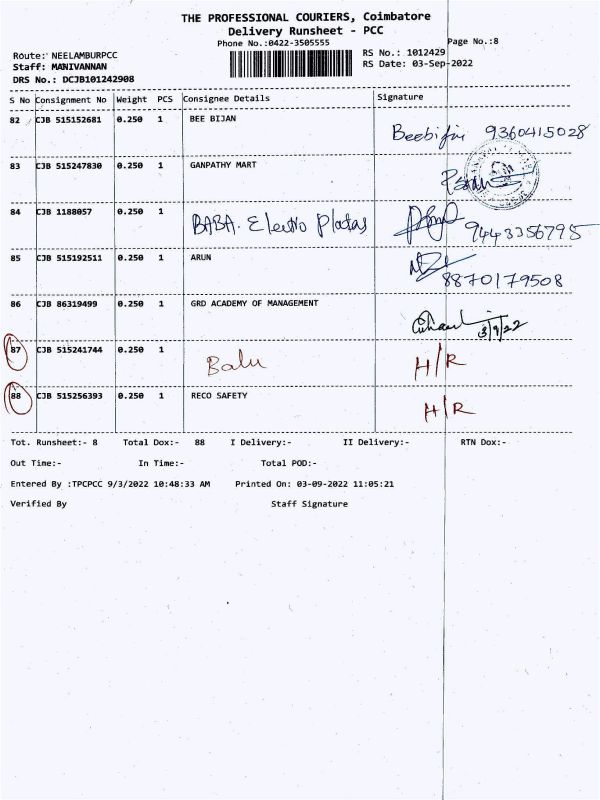 THE PROFESSIONAL COURIERS, Coimbatore
Delivery Runsheet - PCC
Phone No.:0422-3505555
Page No.:8
Route: NEELAMBURPCC
RS No.: 1012429
Staff: MANIVANNAN
RS Date: 03-Sep-2022
DRS No.: DCJB101242908
S No Consignment No Weight PCS Consignee Details Signature
82 CJB 515152681 0.250 1 BEE BIJAN
Beebijin 9360415028
83 CJB 515247830 0.250 1 GANPATHY MART
84 CJB 1188057 0.250 1 BABA. Electro Platas
9443356795
85 CJB 515192511 0.250 1 ARUN
8870179508
86 CJB 86319499 0.250 1 GRD ACADEMY OF MANAGEMENT
3/9/22
87 CJB 515241744 0.250 1 Balu H/R
88 CJB 515256393 0.250 1 RECO SAFETY H/R
Tot. Runsheet:- 8 Total Dox:- 88 I Delivery:- II Delivery:- RTN Dox:-
Out Time:- In Time:- Total POD:-
Entered By :TPCPCC 9/3/2022 10:48:33 AM Printed On: 03-09-2022 11:05:21
Verified By Staff Signature